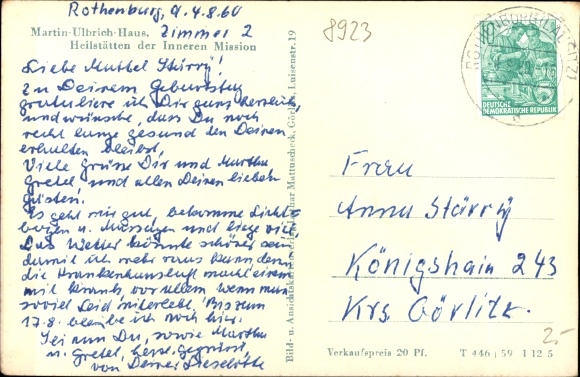 Rothenburg, d. 4.8.60
Zimmer 2
Martin-Ulbrich-Haus,
Heilstätten der Inneren Mission
Liebe Muttel Stärry!
Zu Deinem Geburtstag
gratuliere ich Dir ganz herzlich,
und wünsche, dass Du noch
recht lange gesund den Deinen
erhalten bleibst.
Viele Grüsse Dir und Martha
Gretel, und allen Deinen lieben
Gästen.
Es geht mir gut, bekomme Licht-
bogen u. Massagen und liege viel.
Das Wetter könnte schöner sein,
damit ich mehr raus kann, denn
die Krankenhausluft macht einen
mit krank, vor allem wenn man
soviel Leid miterlebt. Bis zum
17.8. bleibe ich noch hier.
Sei nun Du, sowie Martha
u. Gretel, herzl. gegrüsst
von Deiner Lieselotte
Bild- u. Ansichtskartenverlag Lothar Mattuscheck, Görlitz, Luisenstr. 19
8923
10
5
DEUTSCHE
DEMOKRATISCHE REPUBLIK
Frau
Anna Stärry
Königshain 243
Krs. Görlitz.
2,-
Verkaufspreis 20 Pf. T 446 / 59 I 12 5